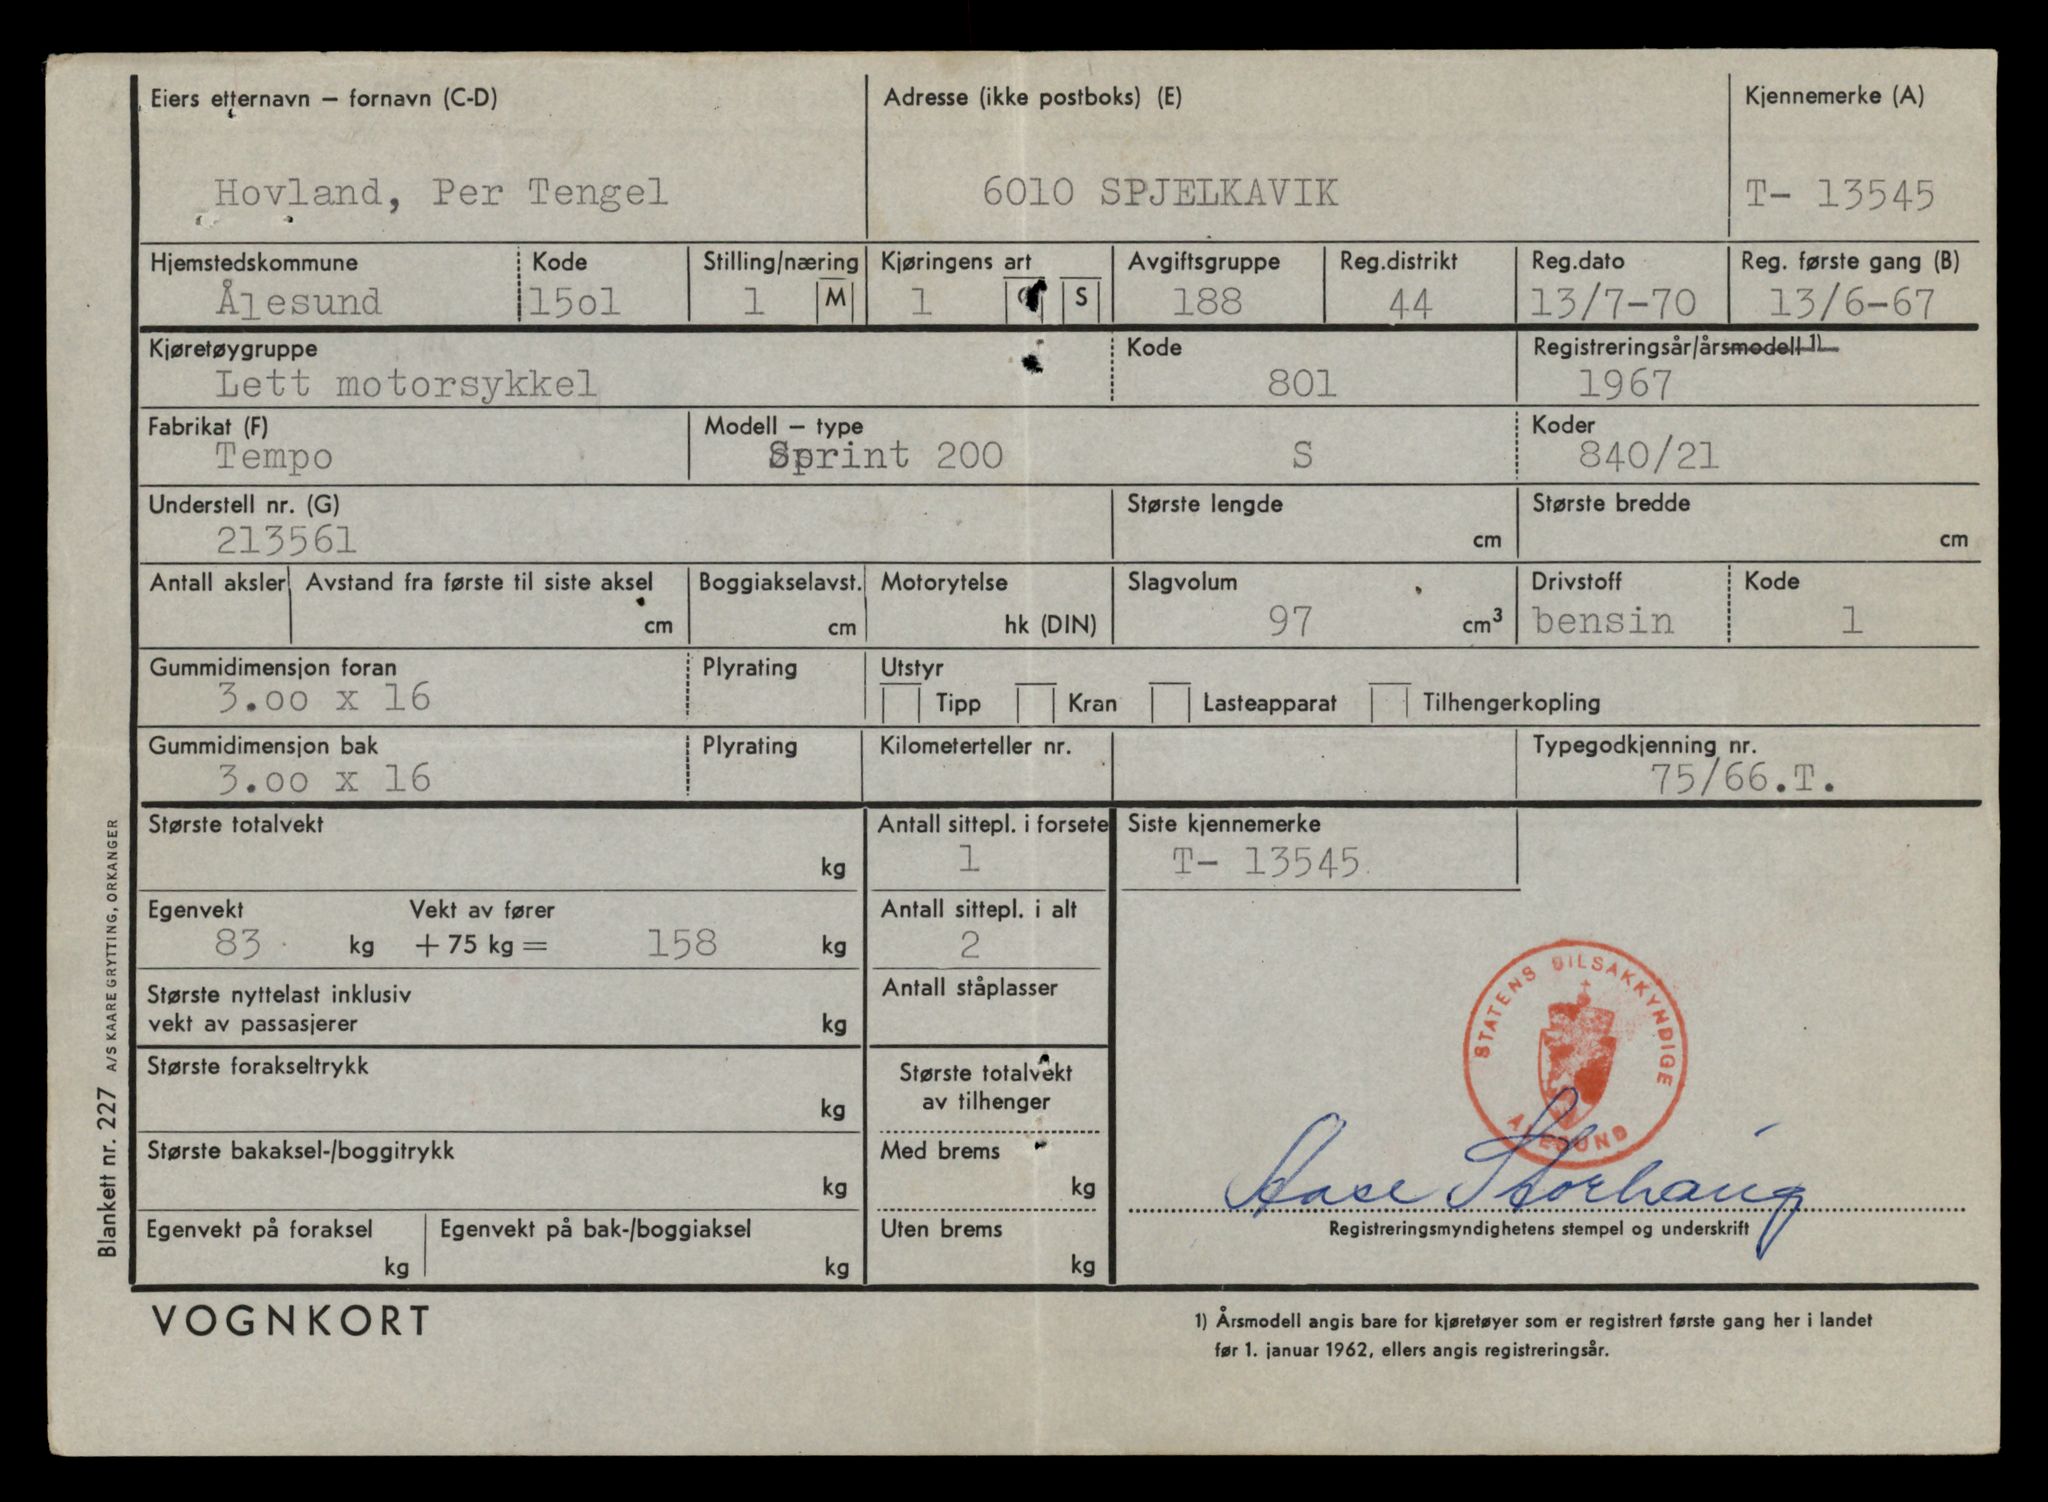 Eiers etternavn – fornavn (C-D) Adresse (ikke postboks) (E) Kjennemerke (A)
Hovland, Per Tengel 6010 SPJELKAVIK T- 13545
Hjemstedskommune Kode Stilling/næring Kjøringens art Avgiftsgruppe Reg.distrikt Reg.dato Reg. første gang (B)
Ålesund 15o1 1 M 1 S 188 44 13/7-70 13/6-67
Kjøretøygruppe Kode Registreringsår/årsmodell 1)
Lett motorsykkel 801 1967
Fabrikat (F) Modell – type Koder
Tempo Sprint 200 S 840/21
Understell nr. (G) Største lengde Største bredde
213561 cm cm
Antall aksler Avstand fra første til siste aksel Boggiakselavst. Motorytelse Slagvolum Drivstoff Kode
cm cm hk (DIN) 97 cm3 bensin 1
Gummidimensjon foran Plyrating Utstyr
3.oo x 16 Tipp Kran Lasteapparat Tilhengerkopling
Gummidimensjon bak Plyrating Kilometerteller nr. Typegodkjenning nr.
3.oo x 16 75/66.T.
Største totalvekt Antall sittepl. i forsete Siste kjennemerke
kg 1 T- 13545
Egenvekt Vekt av fører Antall sittepl. i alt
83 kg + 75 kg = 158 kg 2
Største nyttelast inklusiv Antall ståplasser
vekt av passasjerer kg
Største forakseltrykk Største totalvekt
kg av tilhenger
Største bakaksel-/boggitrykk Med brems
kg kg
Egenvekt på foraksel Egenvekt på bak-/boggiaksel Uten brems
kg kg kg
STATENS BILSAKKYNDIGE
ÅLESUND
Aase Storhaug
Registreringsmyndighetens stempel og underskrift
VOGNKORT
1) Årsmodell angis bare for kjøretøyer som er registrert første gang her i landet
før 1. januar 1962, ellers angis registreringsår.
Blankett nr. 227 A/S KAARE GRYTTING, ORKANGER